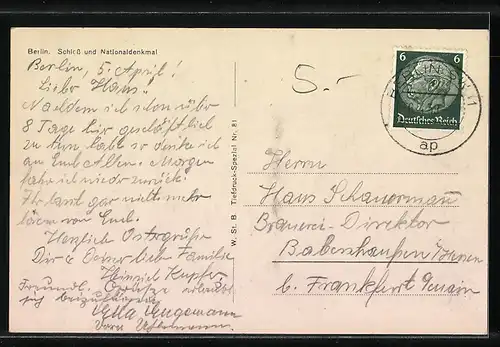 Berlin. Schloß und Nationaldenkmal
Berlin, 5. April!
Liebr Hans!
Nachdem ich schon über
8 Tage hier geschäftlich
zu tun habe so denke ich
an Euch Allen. Morgen
fahr ich wieder zurück.
Ihr laßt gar nichts mehr
hören von Euch.
Herzliche Ostergrüße
Dir & Deiner lieben Familie
Heinrich Kupfer
Freundl. Grüße erlaubt
sich beizufügen
Ella
W. St. B Tiefdruck-Spezial Nr. 81
5.-
6 6
Deutsches Reich
BERLIN
ap
Herrn
Hans Schauermann
Brauerei-Direktor
Babenhausen
b. Frankfurt